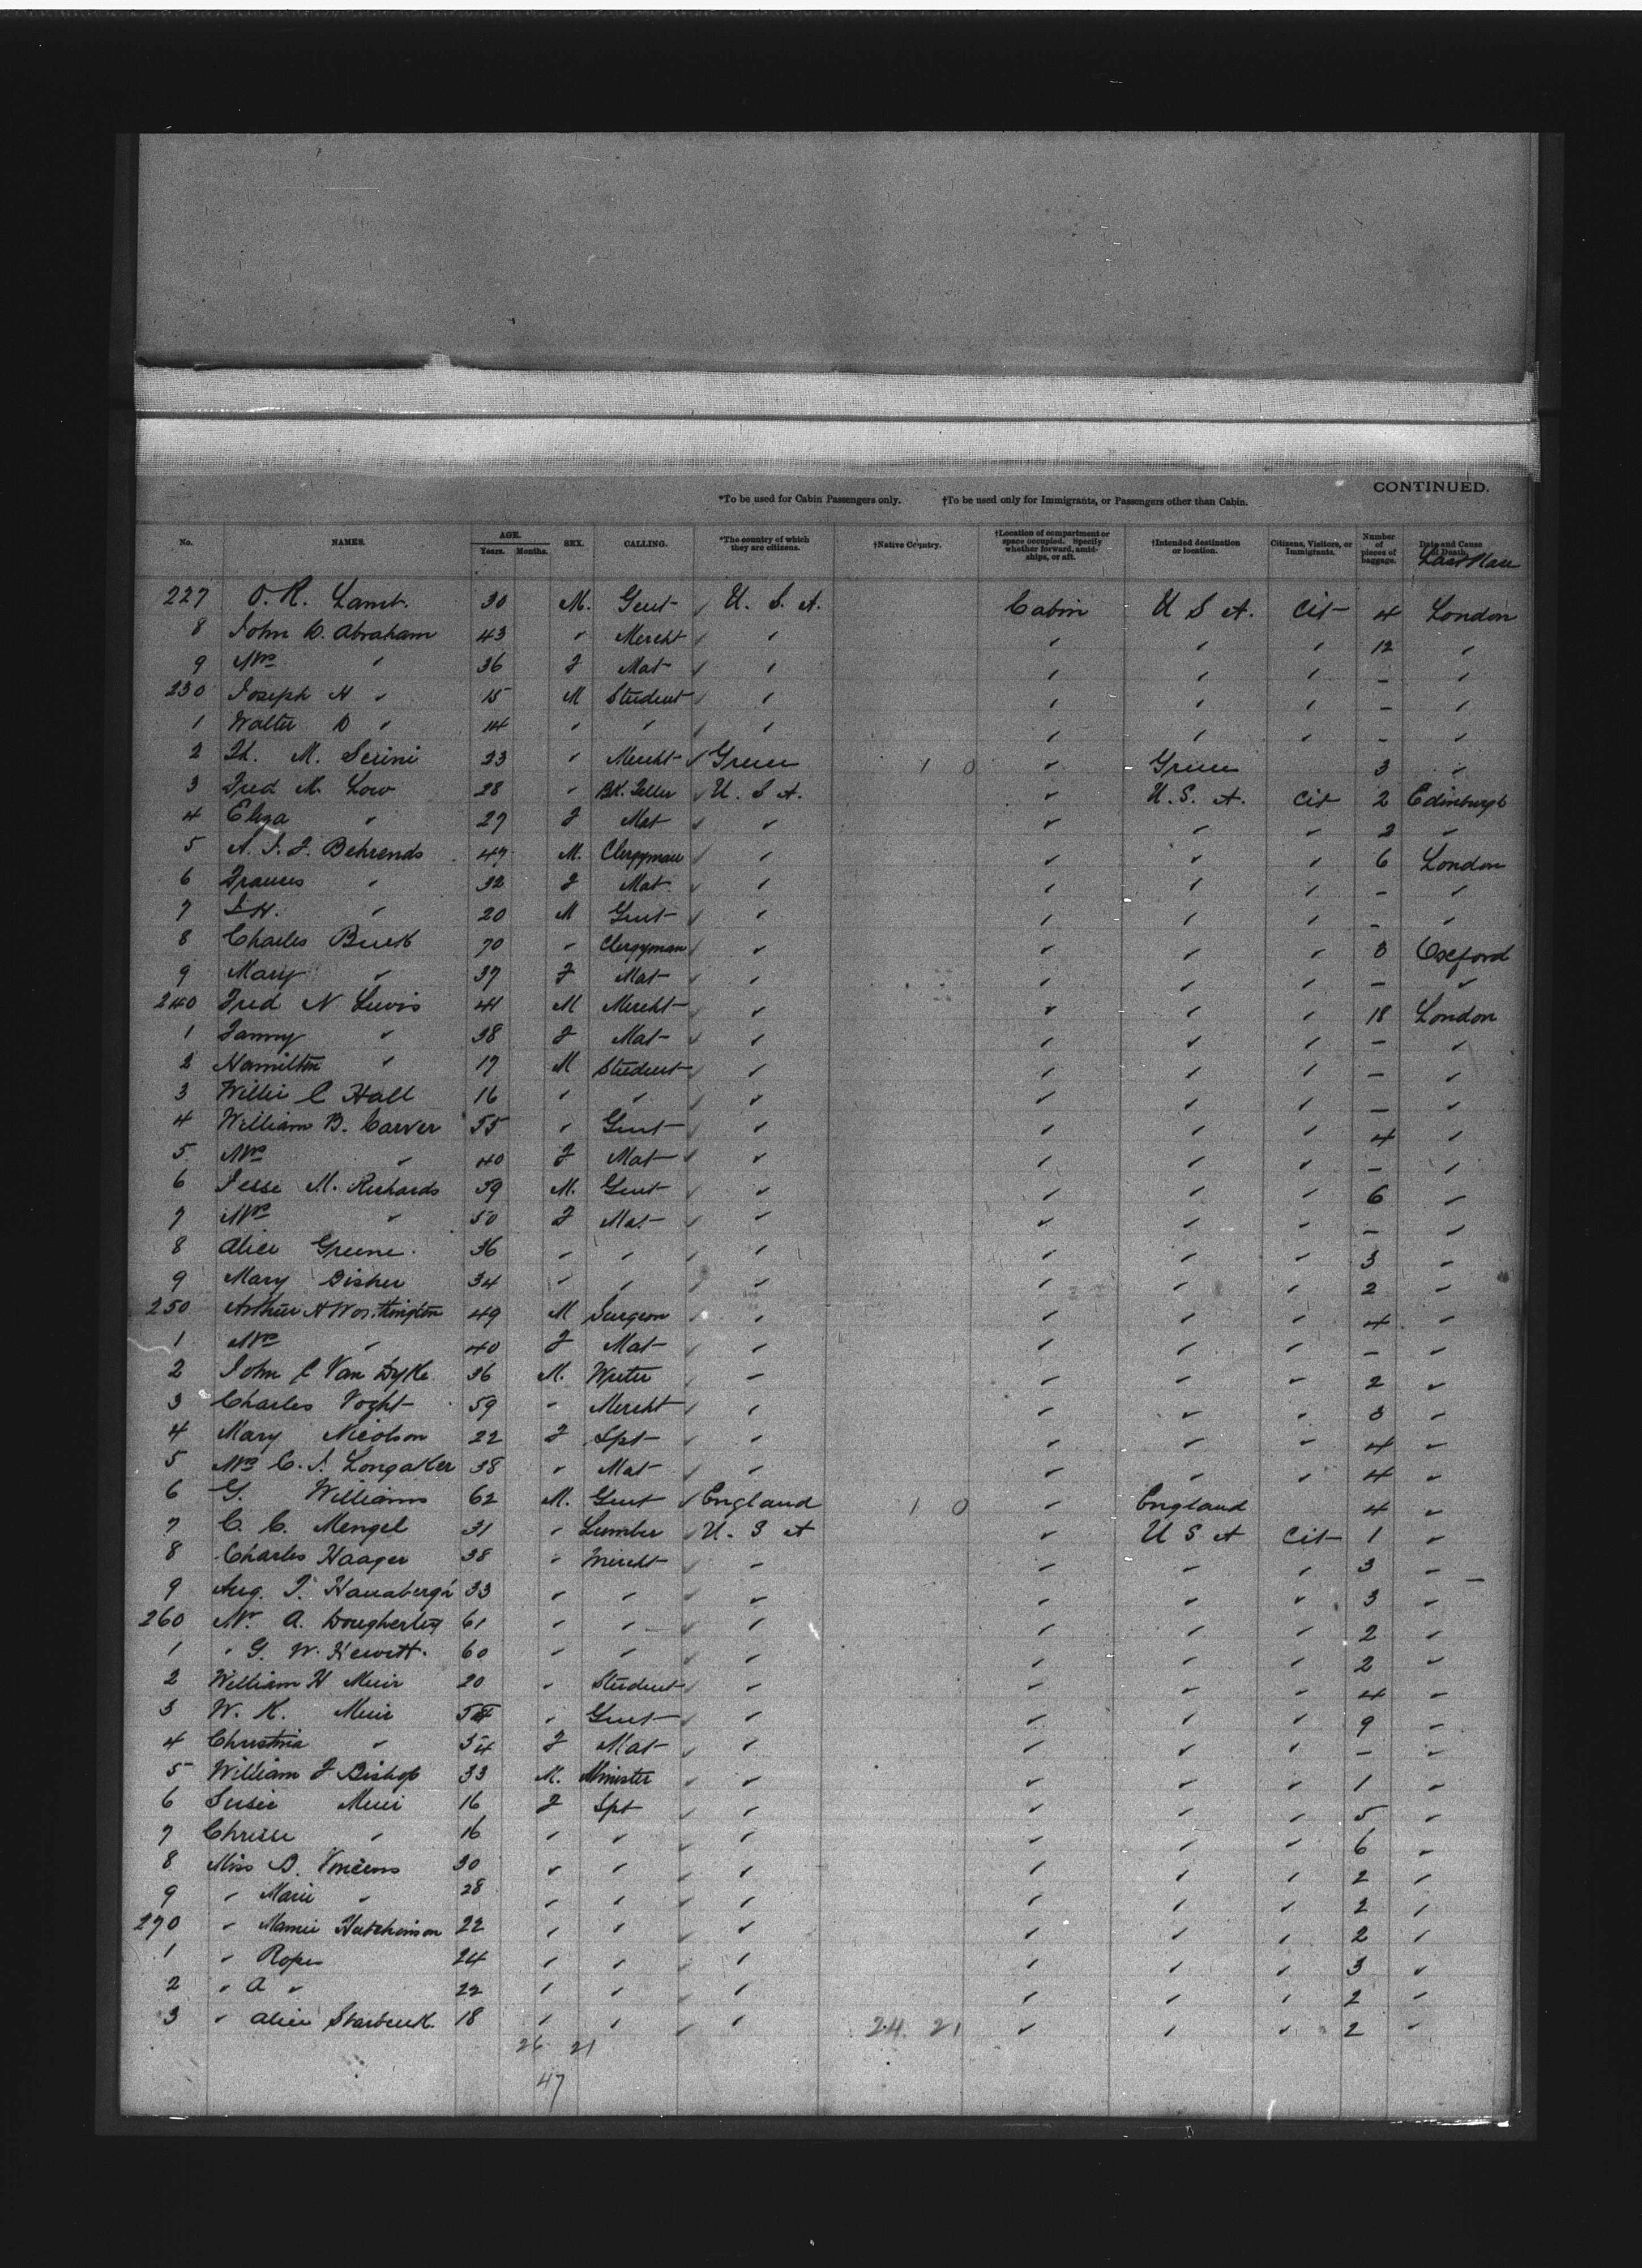 CONTINUED.
*To be used for Cabin Passengers only. †To be used only for Immigrants, or Passengers other than Cabin.
No. NAMES. AGE. Years. Months. SEX. CALLING. *The country of which they are citizens. †Native Country. †Location of compartment or space occupied. Specify whether forward, amidships, or aft. †Intended destination or location. Citizens, Visitors, or Immigrants. Number of pieces of baggage. Date and Cause of Death.
227 O. R. Lamb. 30 M. Gent U. S. A. Cabin U S A. Cit 4 London
8 John D. Abraham 43 " Mercht " " " " 12 "
9 Mrs " 36 F Mat " " " " - "
230 Joseph H " 15 M Student " " " " - "
1 Walter D " 14 " " " " " " - "
2 M. 23 " Mercht Greece 1 0 " Greece 3 "
3 Fred M. Low 28 " Bk. Seller U. S. A. " U. S. A. Cit 2 Edinburgh
4 Eliza " 27 F Mat " " " " 2 "
5 A. J. F. Behrends 47 M. Clergyman " " " " 6 London
6 Frances " 32 F Mat " " " " - "
7 " 20 M Gent " " " " - "
8 Charles Buck 70 " Clergyman " " " " 3 Oxford
9 Mary " 37 F Mat " " " " - "
240 Fred N Lewis 41 M Mercht " " " " 18 London
1 Fanny " 38 F Mat " " " " - "
2 Hamilton " 17 M Student " " " " - "
3 Willie C Hall 16 " " " " " " - "
4 William B. Carver 55 " Gent " " " " 4 "
5 Mrs " 40 F Mat " " " " - "
6 Jesse M. Richards 59 M. Gent " " " " 6 "
7 Mrs " 50 F Mat " " " " - "
8 Alice Greene. 36 " " " " " " 3 "
9 Mary Fisher 34 " " " " " " 2 "
250 Arthur A Worthington 49 M Surgeon " " " " 4 "
1 Mrs " 40 F Mat " " " " - "
2 John C Van Dyke 36 M. Writer " " " " 2 "
3 Charles Voght 59 " Mercht " " " " 3 "
4 Mary Nicolson 22 F Spt " " " " 4 "
5 Mrs C. S. Longaker 38 " Mat " " " " 4 "
6 G. Williams 62 M. Gent England 1 0 " England 4 "
7 C. C. Mengel 31 " Lumber U. S A " U S A Cit 1 "
8 Charles Haager 38 " Mercht " " " " 3 "
9 Aug. 33 " " " " " " 3 "
260 Mr A. Dougherty 61 " " " " " " 2 "
1 " G. W. Hewett. 60 " " " " " " 2 "
2 William H Muir 20 " Student " " " " 4 "
3 W. K. Muir " Gent " " " " 9 "
4 Christina " 54 F Mat " " " " - "
5 William F Bishop 33 M. Minister " " " " 1 "
6 Susie Muir 16 F Spt " " " " 5 "
7 Chrissie " 16 " " " " " " 6 "
8 Miss D. 30 " " " " " " 2 "
9 " Marie " 28 " " " " " " 2 "
270 " Mamie Hutchinson 22 " " " " " " 2 "
1 " Ropes 24 " " " " " " 3 "
2 " A " 22 " " " " " " 2 "
3 " Alice Starbuck. 18 " " " 24. 21 " " " 2 "
26 21
47